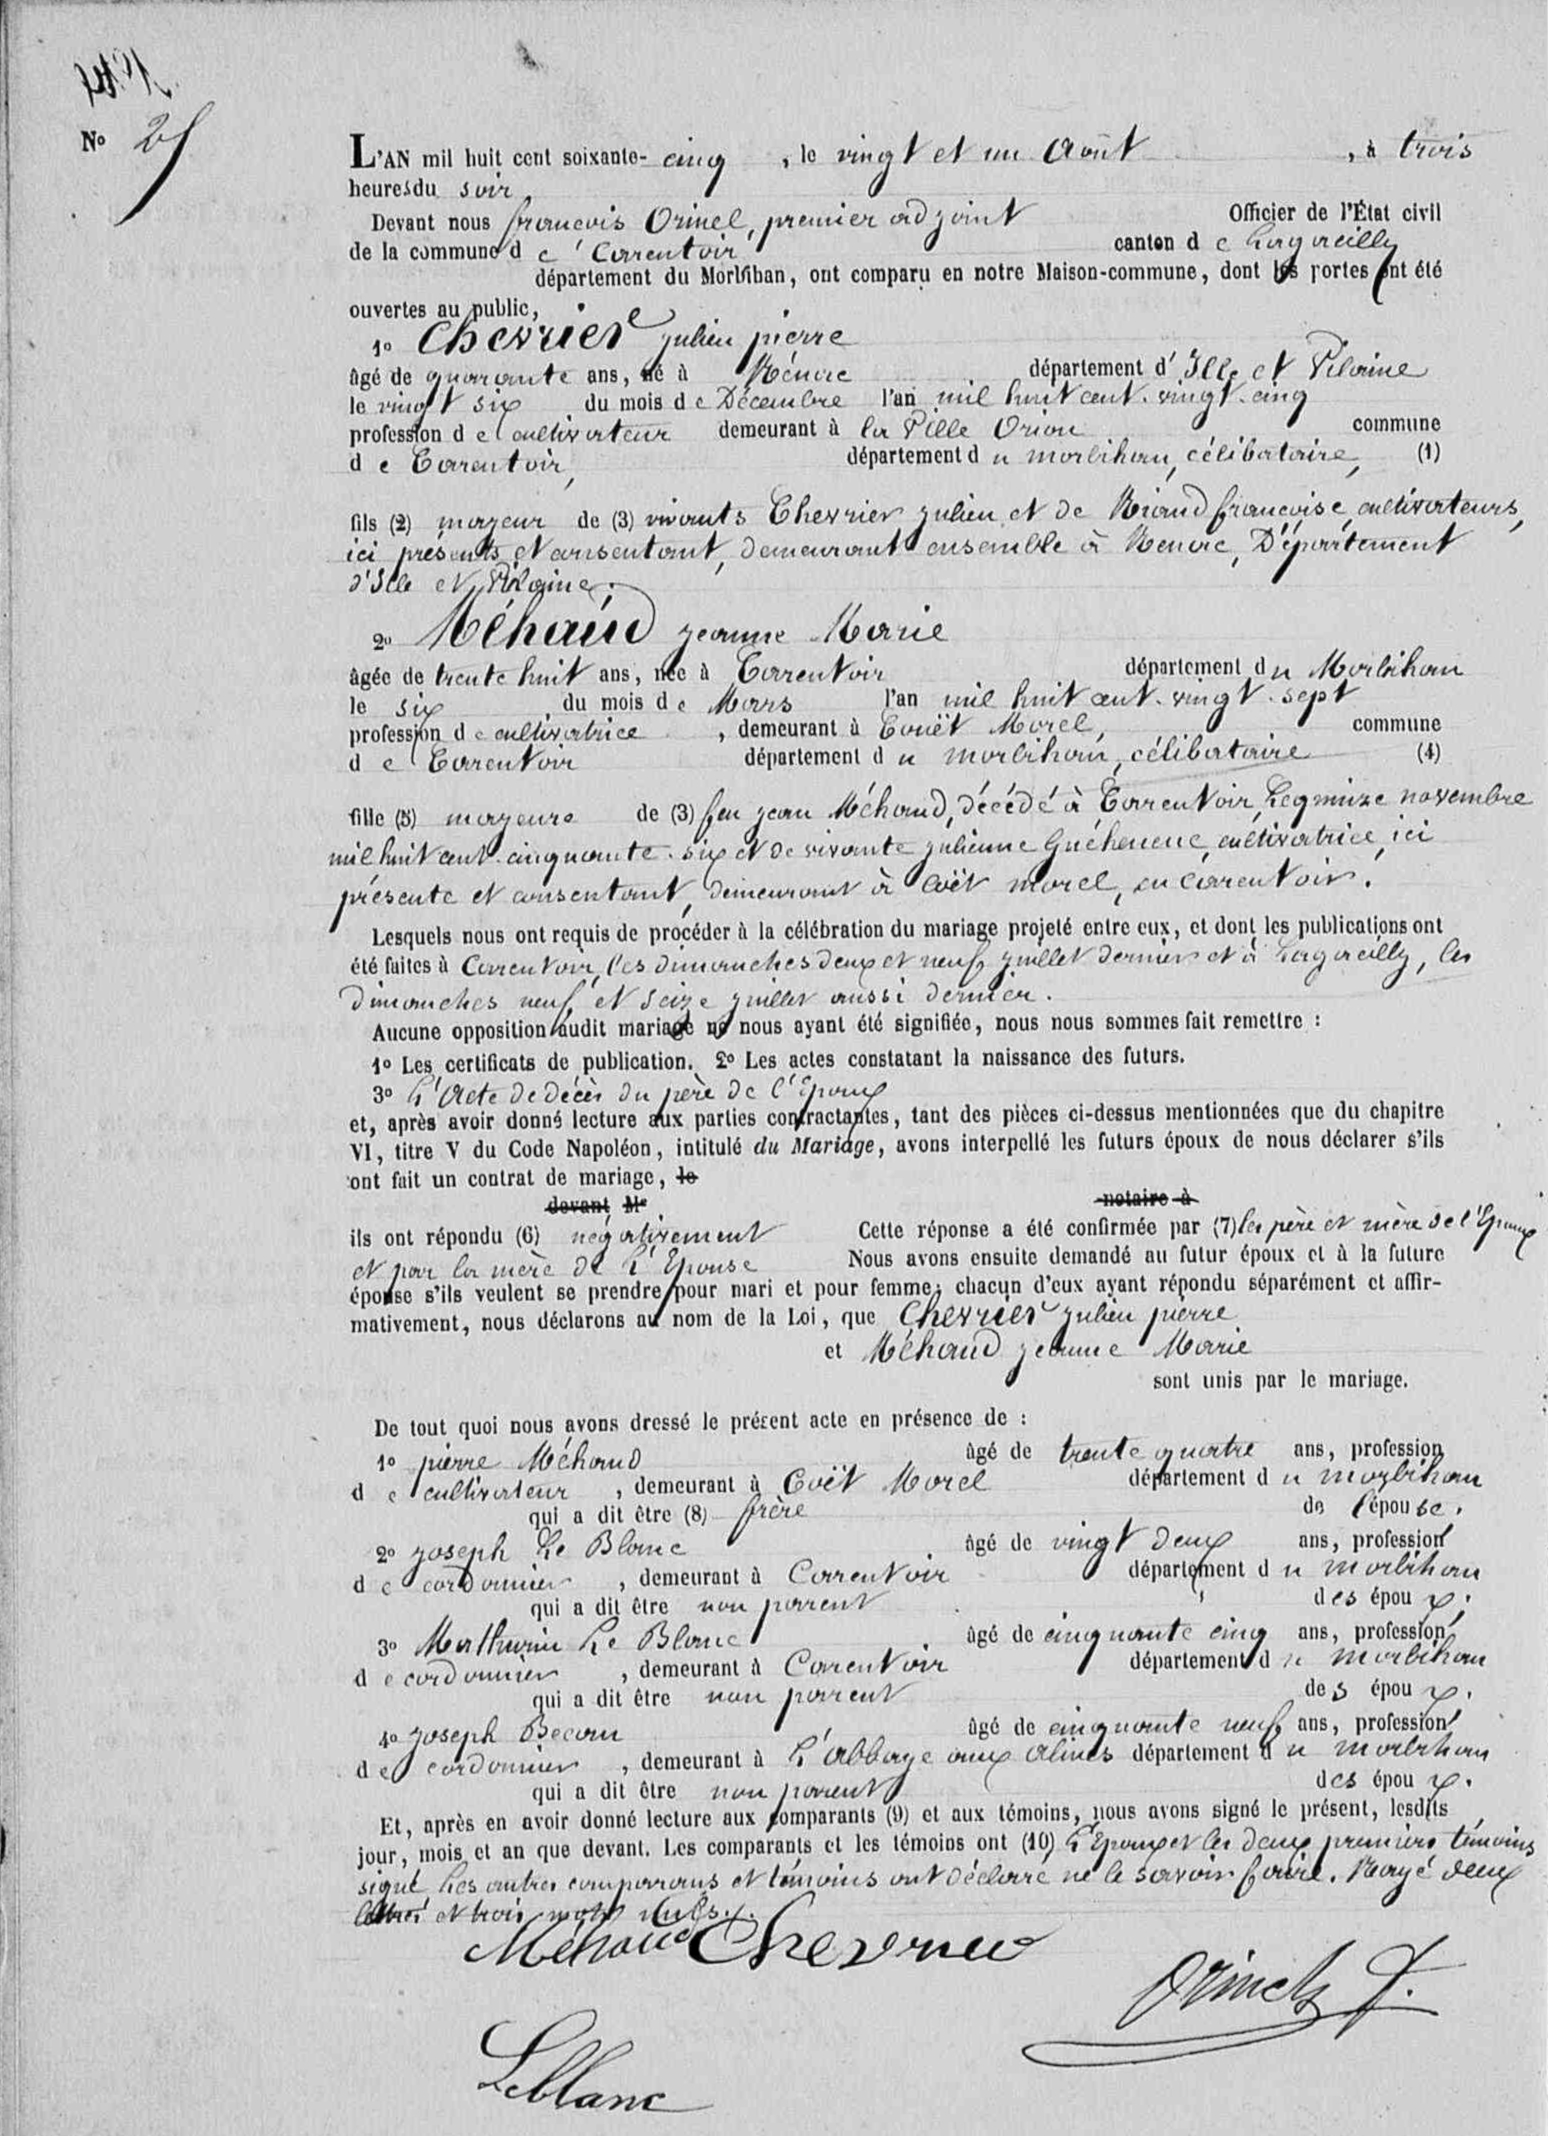 No 25
L'AN mil huit cent soixante- cinq , le vingt et un Août , à trois
heures du soir,
Devant nous francois Orinel, premier adjoint Officier de l'État civil
de la commune d e Carentoir canton d e Lagacilly
département du Morbihan, ont comparu en notre Maison-commune, dont les portes ont été
ouvertes au public,
1o Chevrier julien pierre
âgé de quarante ans, né à département d' Ille et Vilaine
le vingt six du mois d e Décembre l'an mil huit cent. vingt. cinq
profession d e cultivateur demeurant à la Ville Orion commune
d e Carentoir, département d u morbihan, célibataire, (1)
fils (2) mageur de (3) vivants Chevrier julien et de Riaud francoise, cultivateurs,
ici présents et consentant, demeurant ensemble à Département
d'Ille et Vilaine.
2o Méhaud jeanne Marie
âgée de trente huit ans, née à Carentoir département d u Morbihan
le six du mois d e Mars l'an mil huit cent. vingt. sept
profession d e cultivatrice , demeurant à Couët Morel, commune
d e Carentoir département d u morbihan, célibataire (4)
fille (5) mageure de (3) feu jean Méhaud, décédé à Carentoir, Le quinze novembre
mil huit cent. cinquante. six et de vivante julienne Guéheneuc, cultivatrice, ici
présente et consentant, demeurant à Coët morel, en Carentoir.
Lesquels nous ont requis de procéder à la célébration du mariage projeté entre eux, et dont les publications ont
été faites à Carentoir, les dimanches deux et neuf juillet dernier et à Lagacilly, les
dimanches neuf et seize juillet aussi dernier.
Aucune opposition audit mariage ne nous ayant été signifiée, nous nous sommes fait remettre :
1o Les certificats de publication. 2o Les actes constatant la naissance des futurs.
3o L'Acte de décès du père de l'Epoux
et, après avoir donné lecture aux parties contractantes, tant des pièces ci-dessus mentionnées que du chapitre
VI, titre V du Code Napoléon, intitulé du Mariage, avons interpellé les futurs époux de nous déclarer s'ils
ont fait un contrat de mariage, le
devant Me notaire à
ils ont répondu (6) négativement Cette réponse a été confirmée par (7) les père et mère de l'Epoux
et par la mère de L'Epouse Nous avons ensuite demandé au futur époux et à la future
épouse s'ils veulent se prendre pour mari et pour femme; chacun d'eux ayant répondu séparément et affir-
mativement, nous déclarons au nom de la Loi, que Chevrier julien pierre
et Méhaud jeanne Marie
sont unis par le mariage.
De tout quoi nous avons dressé le présent acte en présence de :
1o pierre Méhaud âgé de trente quatre ans, profession
d e cultivateur , demeurant à Coët Morel département d u morbihan
qui a dit être (8) frère de l'épouse.
2o joseph Le Blanc âgé de vingt deux ans, profession
d e cordonnier , demeurant à Carentoir département d u morbihan
qui a dit être non parent des époux.
3o Mathurin Le Blanc âgé de cinquante cinq ans, profession
d e cordonnier , demeurant à Carentoir département d u morbihan
qui a dit être non parent des époux.
4o joseph Becam âgé de cinquante neuf ans, profession
d e cordonnier , demeurant à L'abbaye aux alines département d u morbihan
qui a dit être non parent des époux.
Et, après en avoir donné lecture aux comparants (9) et aux témoins, nous avons signé le présent, lesdits
jour, mois et an que devant. Les comparants et les témoins ont (10) L'Epoux et les deux premiers témoins
signé Les autres comparans et témoins ont déclaré ne le savoir faire. Rayé deux
lettres et trois mots nuls.
Méhaud Chevrier
Orinel f.
Leblanc